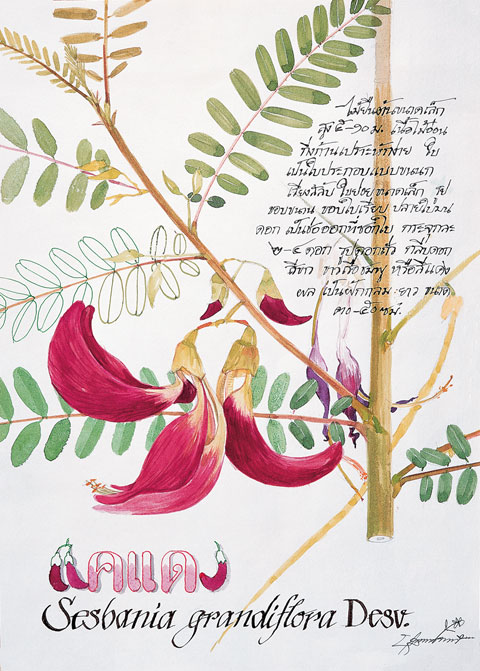 ไม้ยืนต้นขนาดเล็ก
สูง ๕-๑๐ ม. เนื้อไม้อ่อน
กิ่งก้านเปราะหักง่าย ใบ
เป็นใบประกอบแบบขนนก
เรียงสลับ ใบย่อยขนาดเล็ก รูป
ขอบขนาน ขอบใบเรียบ ปลายใบมน
ดอก เป็นช่อออกที่ซอกใบ กระจุกละ
๒-๔ ดอก รูปดอกถั่ว กลีบดอก
สีขาว ขาวเรื่อชมพู หรือสีแดง
ผล เป็นฝักกลม ยาว ขนาด
๓๐-๕๐ ซม.
แคแดง
Sesbania grandiflora Desv.